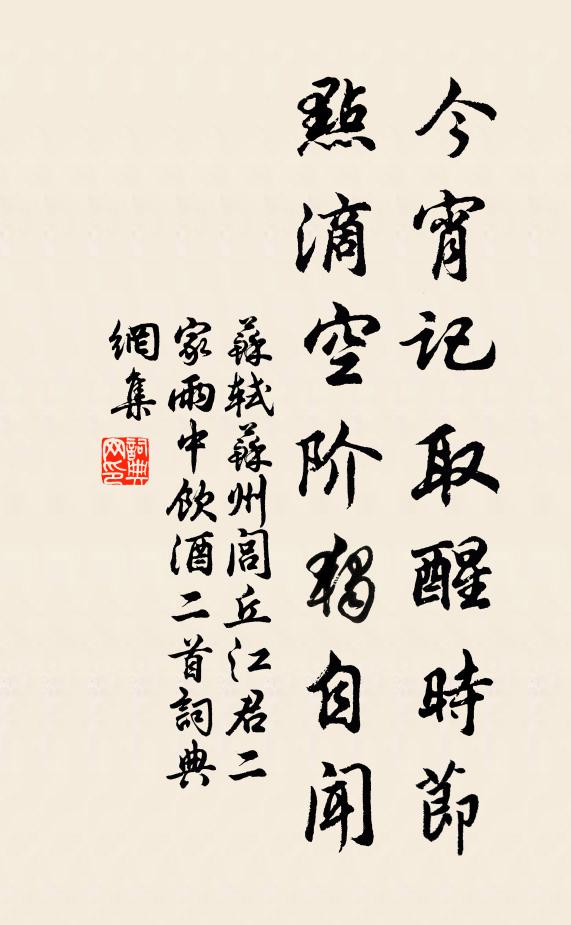 今宵記取醒時節
點滴空阶獨自聞
蘇軾蘇州閭丘江君二
家雨中飲酒二首詞典
網集
詞典
网印